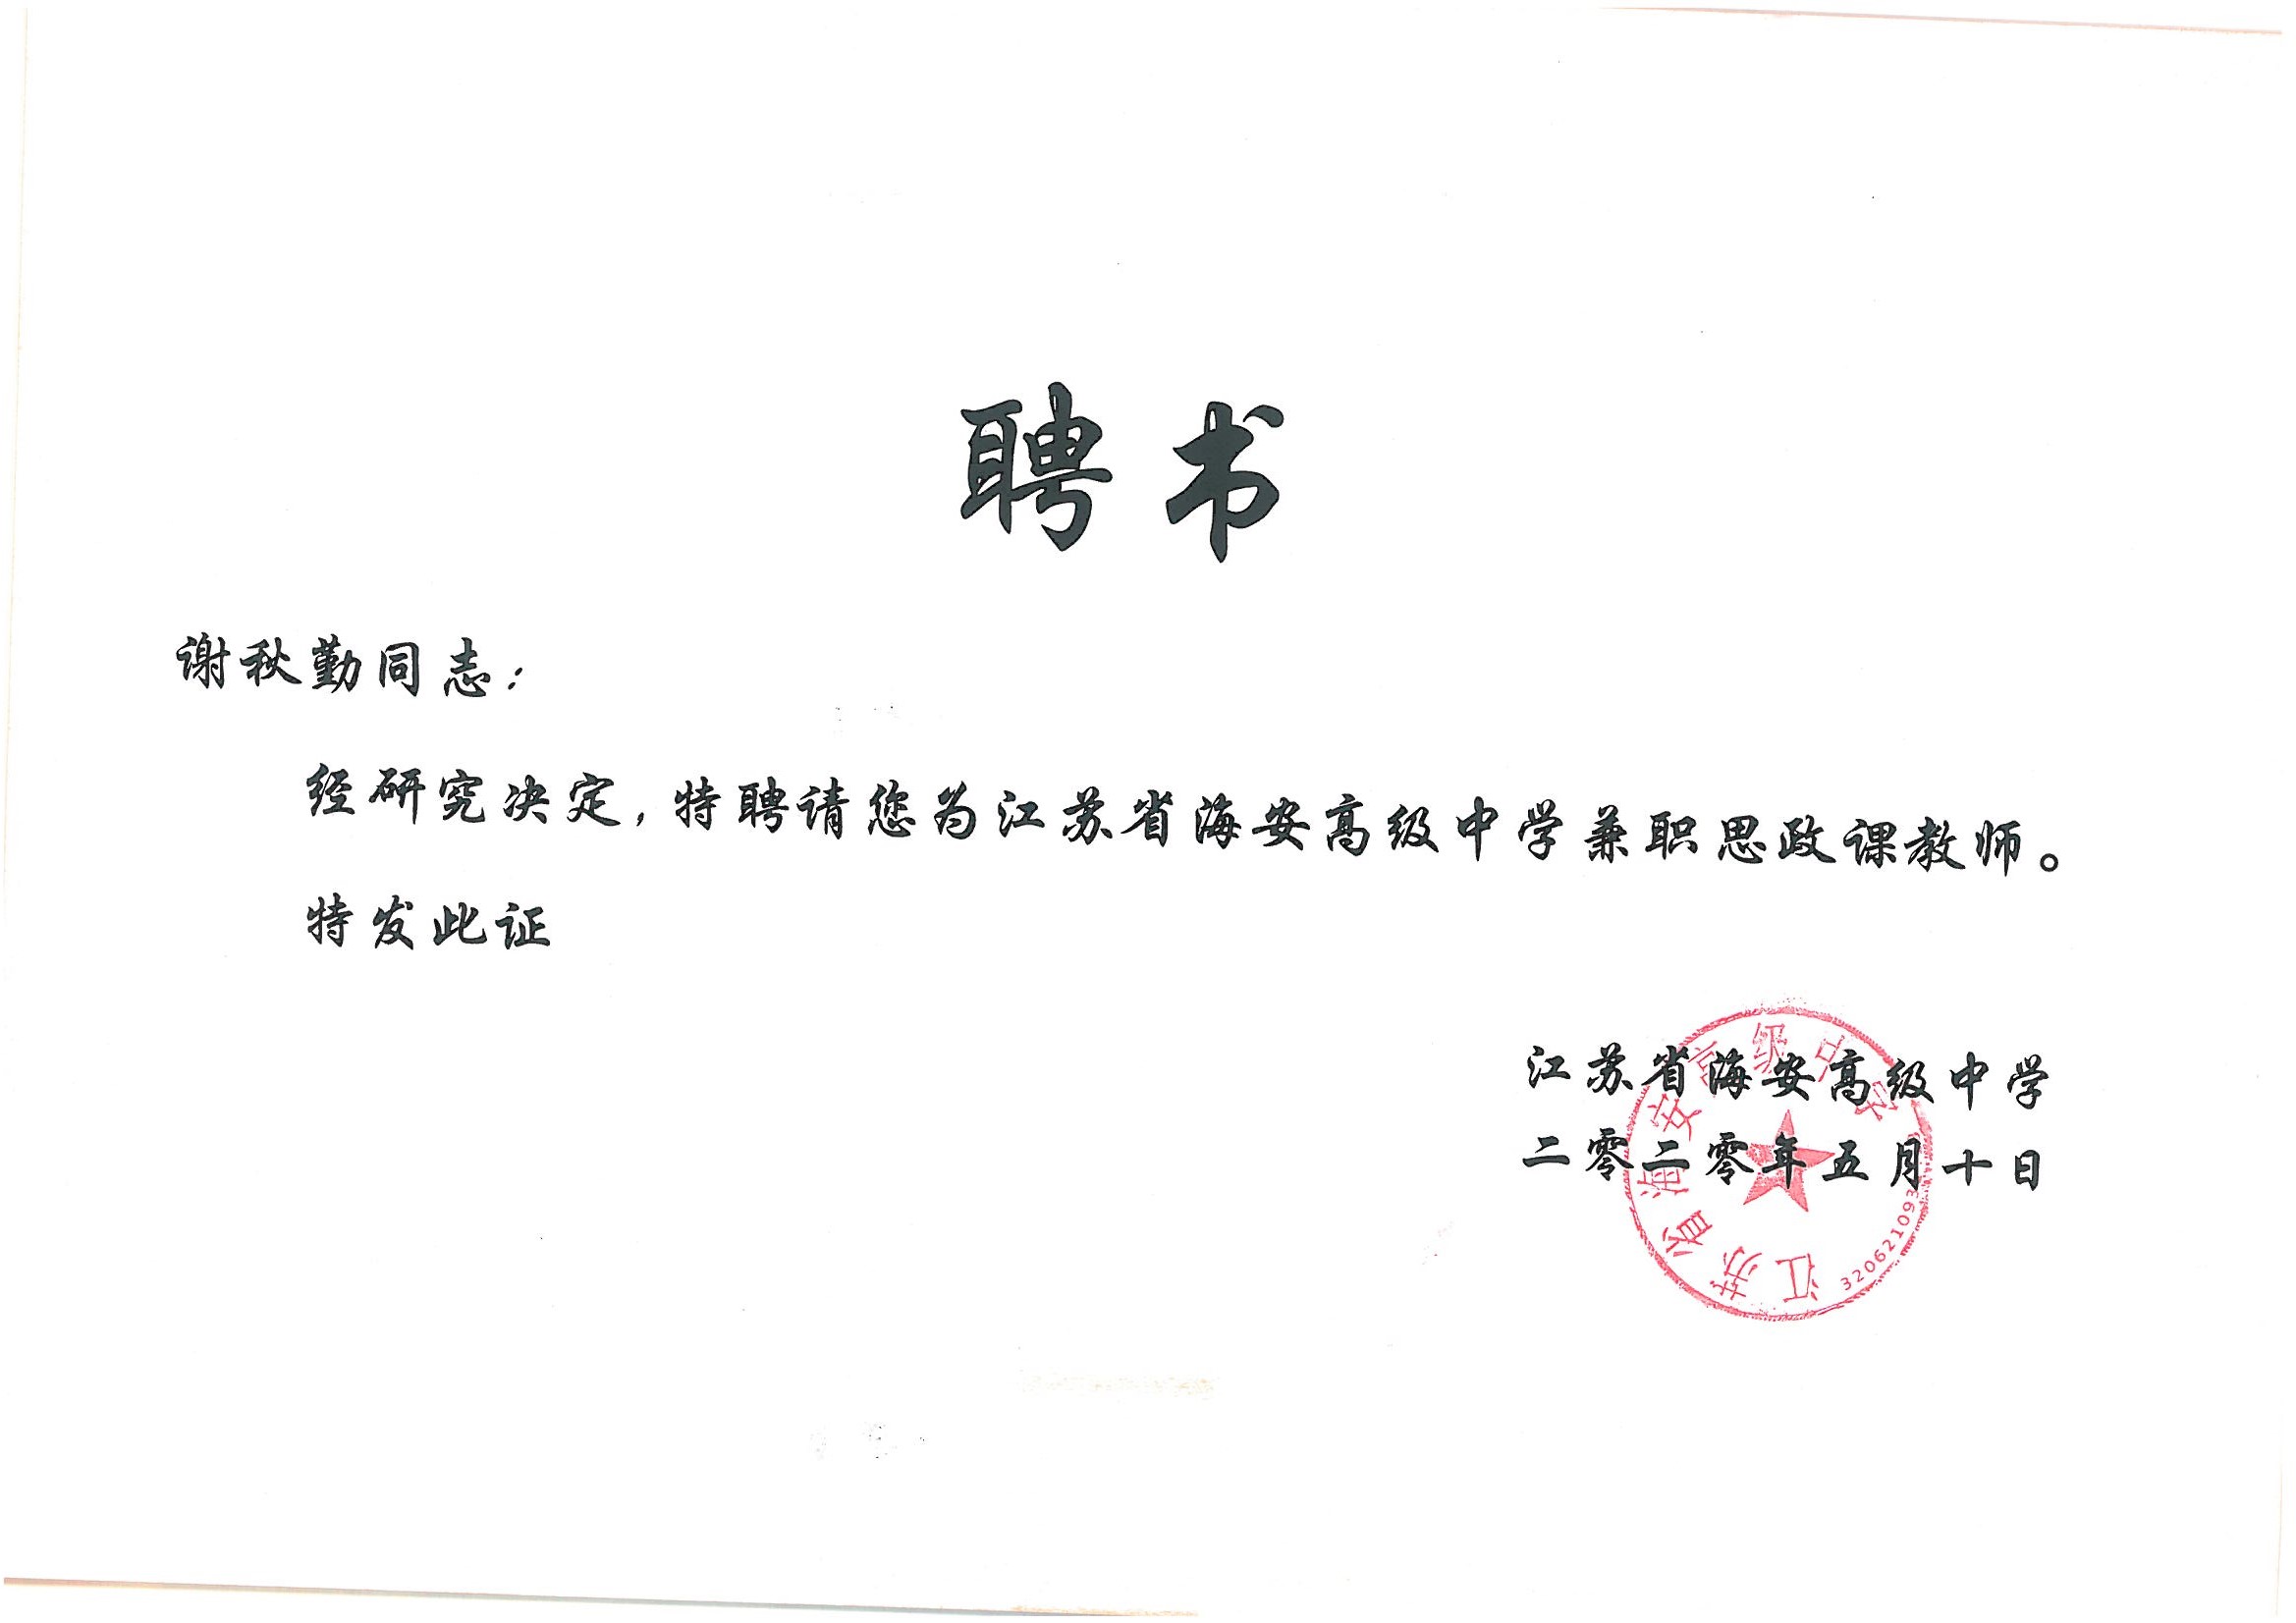 聘书
谢秋勤同志：
经研究决定，特聘请您为江苏省海安高级中学兼职思政课教师。
特发此证
江苏省海安高级中学
二零二零年五月十日
江苏省海安高级中学
320621093